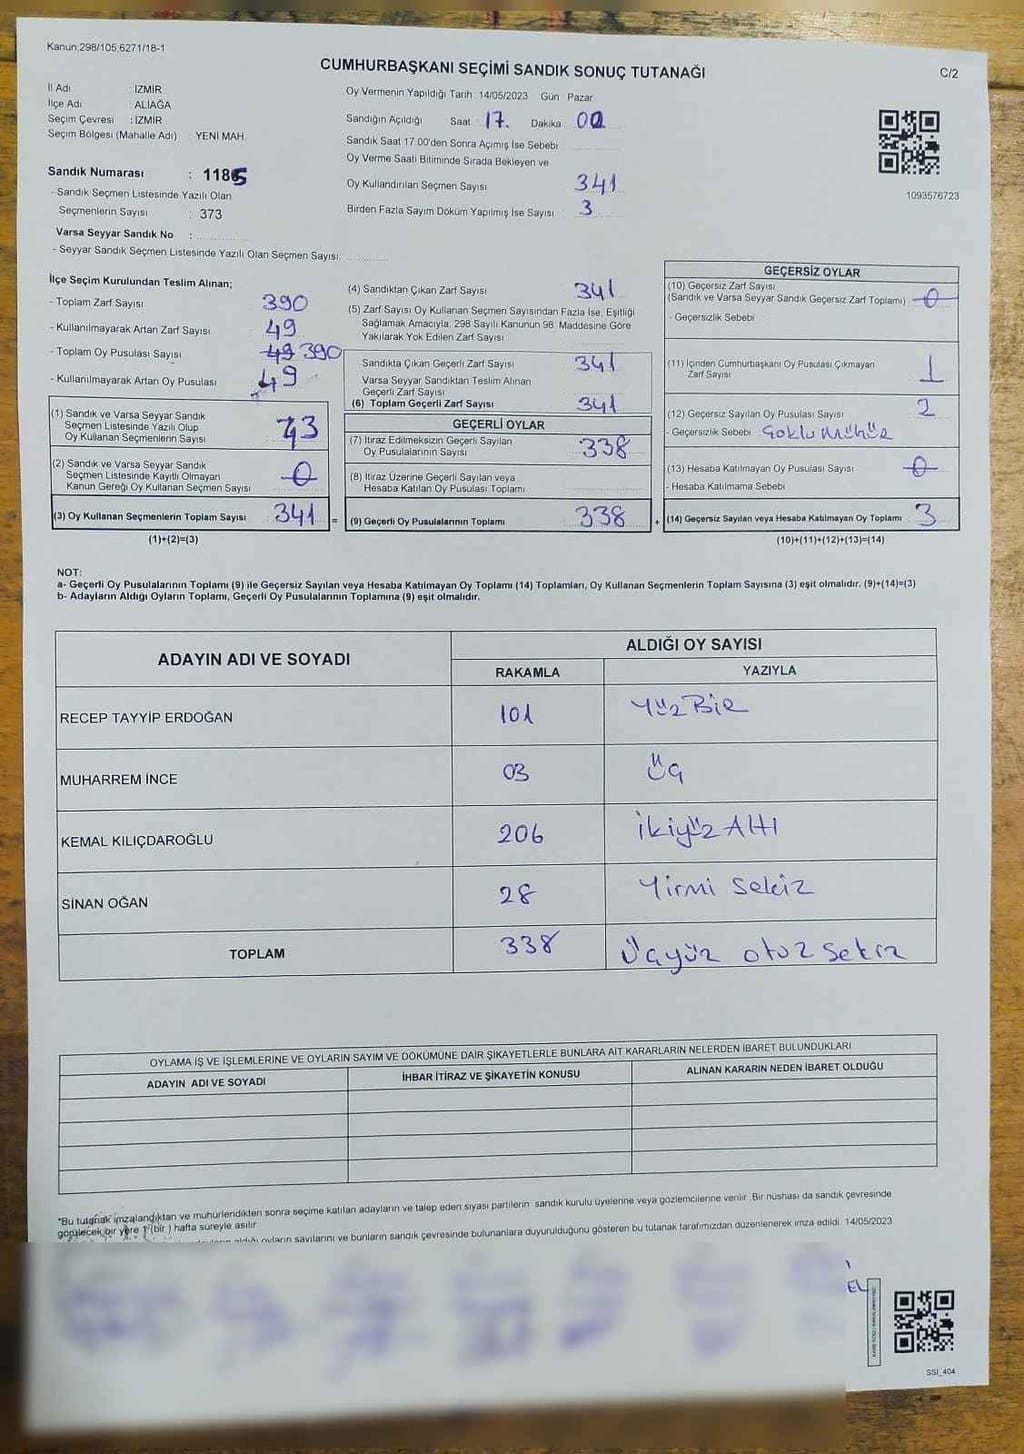 Kanun;298/105;6271/18-1
CUMHURBAŞKANI SEÇİMİ SANDIK SONUÇ TUTANAĞI
C/2
İl Adı : İZMİR
İlçe Adı : ALİAĞA
Seçim Çevresi : İZMİR
Seçim Bölgesi (Mahalle Adı) : YENİ MAH.
Sandık Numarası : 1185
- Sandık Seçmen Listesinde Yazılı Olan
Seçmenlerin Sayısı : 373
Varsa Seyyar Sandık No :
- Seyyar Sandık Seçmen Listesinde Yazılı Olan Seçmen Sayısı:
Oy Vermenin Yapıldığı Tarih : 14/05/2023 Gün Pazar
Sandığın Açıldığı Saat 17. Dakika 00
Sandık Saat 17:00'den Sonra Açımış İse Sebebi
Oy Verme Saati Bitiminde Sırada Bekleyen ve
Oy Kullandırılan Seçmen Sayısı 341
Birden Fazla Sayım Döküm Yapılmış İse Sayısı 3
1093576723
İlçe Seçim Kurulundan Teslim Alınan;
- Toplam Zarf Sayısı 390
- Kullanılmayarak Artan Zarf Sayısı 49
- Toplam Oy Pusulası Sayısı 49 390
- Kullanılmayarak Artan Oy Pusulası 49
(1) Sandık ve Varsa Seyyar Sandık
Seçmen Listesinde Yazılı Olup
Oy Kullanan Seçmenlerin Sayısı
(2) Sandık ve Varsa Seyyar Sandık
Seçmen Listesinde Kayıtlı Olmayan
Kanun Gereği Oy Kullanan Seçmen Sayısı 0
(3) Oy Kullanan Seçmenlerin Toplam Sayısı 341 =
(1)+(2)=(3)
(4) Sandıktan Çıkan Zarf Sayısı 341
(5) Zarf Sayısı Oy Kullanan Seçmen Sayısından Fazla İse, Eşitliği
Sağlamak Amacıyla, 298 Sayılı Kanunun 98. Maddesine Göre
Yakılarak Yok Edilen Zarf Sayısı
Sandıkta Çıkan Geçerli Zarf Sayısı 341
Varsa Seyyar Sandıktan Teslim Alınan
Geçerli Zarf Sayısı
(6) Toplam Geçerli Zarf Sayısı 341
GEÇERLİ OYLAR
(7) İtiraz Edilmeksizin Geçerli Sayılan
Oy Pusulalarının Sayısı 338
(8) İtiraz Üzerine Geçerli Sayılan veya
Hesaba Katılan Oy Pusulası Toplamı
(9) Geçerli Oy Pusulalarının Toplamı 338 +
GEÇERSİZ OYLAR
(10) Geçersiz Zarf Sayısı
(Sandık ve Varsa Seyyar Sandık Geçersiz Zarf Toplamı) 0
- Geçersizlik Sebebi
(11) İçinden Cumhurbaşkanı Oy Pusulası Çıkmayan
Zarf Sayısı 1
(12) Geçersiz Sayılan Oy Pusulası Sayısı 2
- Geçersizlik Sebebi Çoklu Mühür
(13) Hesaba Katılmayan Oy Pusulası Sayısı 0
- Hesaba Katılmama Sebebi
(14) Geçersiz Sayılan veya Hesaba Katılmayan Oy Toplamı 3
(10)+(11)+(12)+(13)=(14)
NOT:
a- Geçerli Oy Pusulalarının Toplamı (9) ile Geçersiz Sayılan veya Hesaba Katılmayan Oy Toplamı (14) Toplamları, Oy Kullanan Seçmenlerin Toplam Sayısına (3) eşit olmalıdır. (9)+(14)=(3)
b- Adayların Aldığı Oyların Toplamı, Geçerli Oy Pusulalarının Toplamına (9) eşit olmalıdır.
ADAYIN ADI VE SOYADI ALDIĞI OY SAYISI
RAKAMLA YAZIYLA
RECEP TAYYİP ERDOĞAN 101 Yüz Bir
MUHARREM İNCE 03 Üç
KEMAL KILIÇDAROĞLU 206 İkiyüz Altı
SİNAN OĞAN 28 Yirmi Sekiz
TOPLAM 338 Üçyüz otuz sekiz
OYLAMA İŞ VE İŞLEMLERİNE VE OYLARIN SAYIM VE DÖKÜMÜNE DAİR ŞİKAYETLERLE BUNLARA AİT KARARLARIN NELERDEN İBARET BULUNDUKLARI
ADAYIN ADI VE SOYADI İHBAR İTİRAZ VE ŞİKAYETİN KONUSU ALINAN KARARIN NEDEN İBARET OLDUĞU
*Bu tutanak imzalandıktan ve mühürlendikten sonra seçime katılan adayların ve talep eden siyasi partilerin sandık kurulu üyelerine veya gözlemcilerine verilir. Bir nüshası da sandık çevresinde
görülecek bir yere 1 (bir ) hafta süreyle asılır.
aldığı oyların sayılarını ve bunların sandık çevresinde bulunanlara duyurulduğunu gösteren bu tutanak tarafımızdan düzenlenerek imza edildi. 14/05/2023
EL
SSI_404